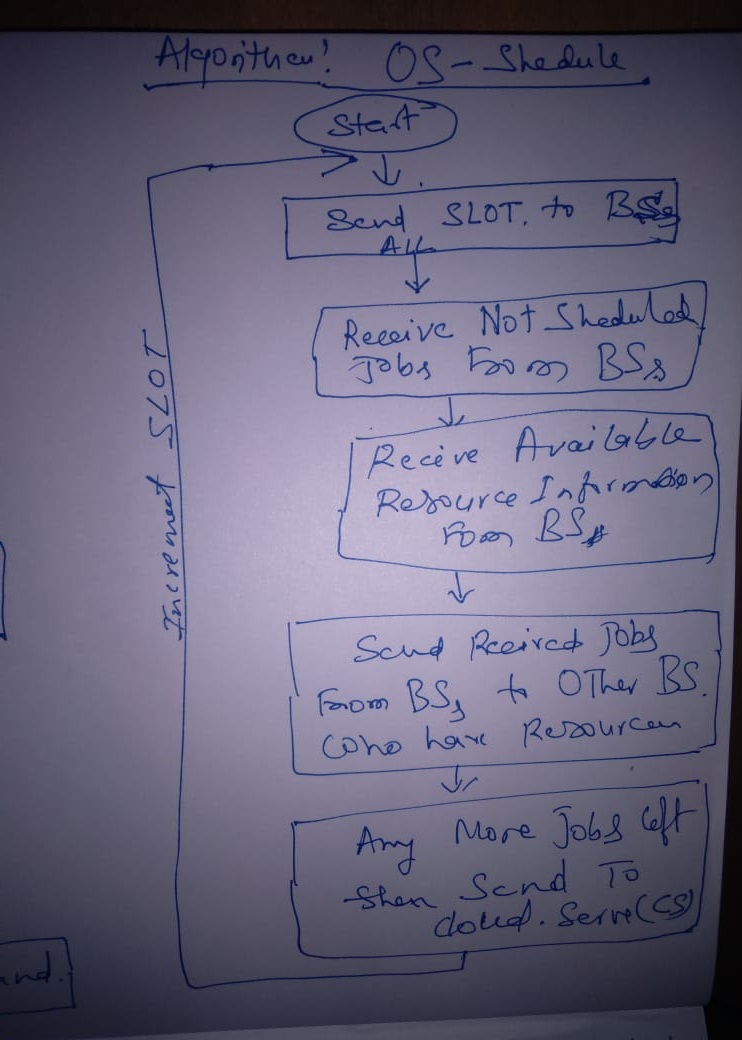 Algorithm: OS-Shedule
Start
Send SLOT. to BSs
All
Receive Not Sheduled
Jobs From BSs
Receive Available
Resource Information
From BSs
Send Received Jobs
From BSs to OTher BS.
Who have Resources
Any More Jobs left
then Send To
Cloud. Serve(CS)
Increment SLOT
and.